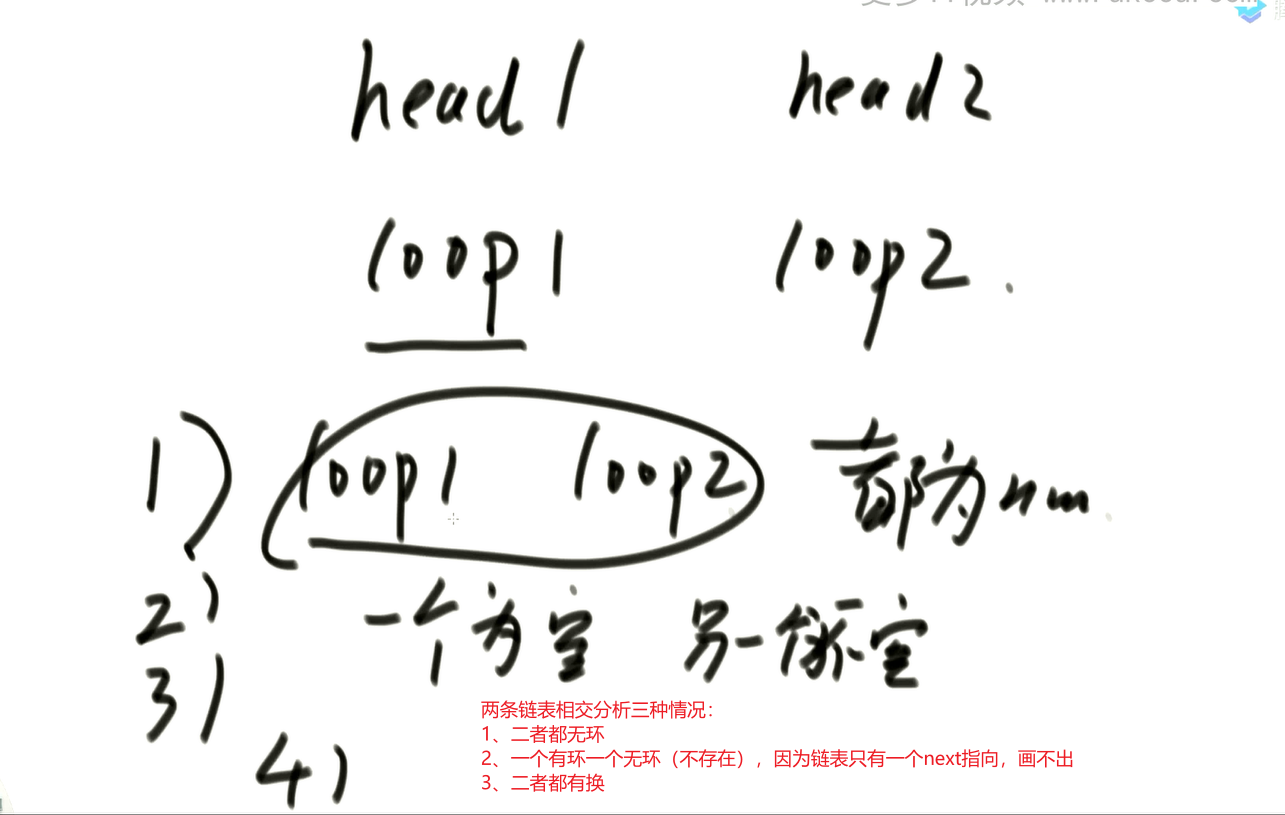 head1 head2
loop1 loop2.
1) loop1 loop2 都为null
2) 一个为空 另一个不空
3)
4)
两条链表相交分析三种情况：
1、二者都无环
2、一个有环一个无环（不存在），因为链表只有一个next指向，画不出
3、二者都有换